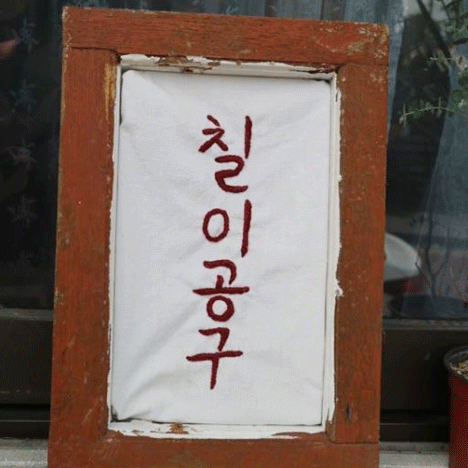 칠이공구